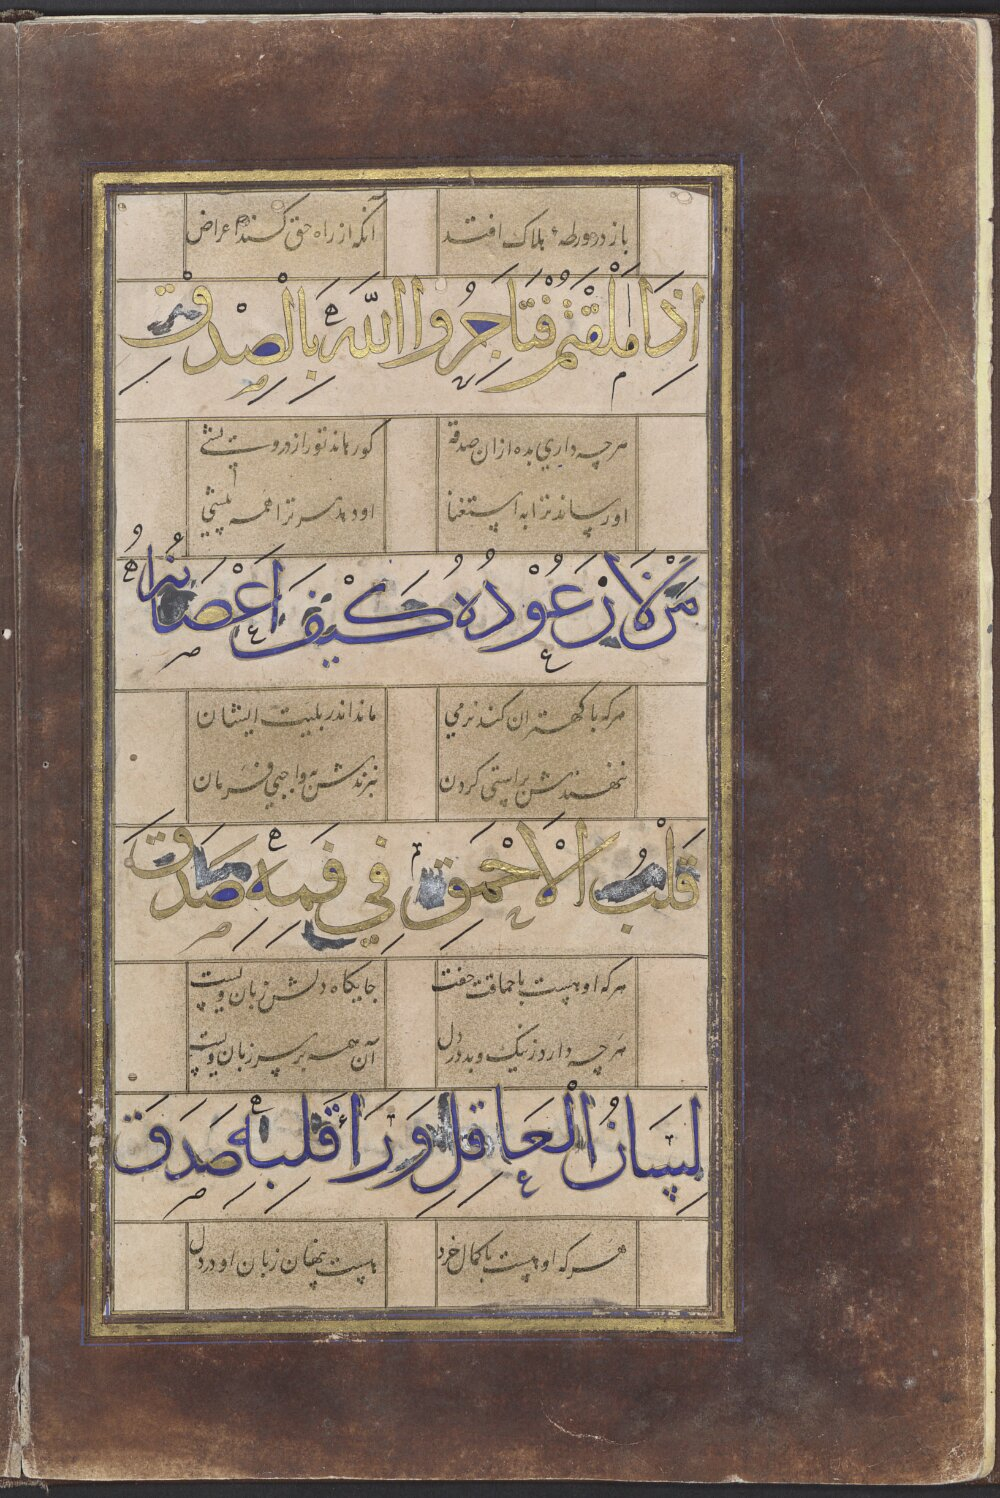 باز در ورطهٔ هلاک افتد آنکه از راه حق کند اعراض
اِذَا اَمْلَقْتُمْ فَتَاجِرُوا اللّٰهَ بِالصدقة
هرچه داری بده ازان صدقه تو را ز درویشی
او رساند ترا به استغنا او دهد مر ترا همه بیشی
مَنْ لَانَ عُوْدُهُ كيف اَغْصَانُهُ
هرکه با کهتران کند نرمی ماند اندر بلیت ایشان
بنهندش براستی کردن ببرندش بواجبی فرمان
قَلْبُ الْاَحْمَقِ فِي فَمِهِ صَدَقَ
هرکه او هست با حماقت جفت جایکاه دلش زبان ویست
هرچه دارد ز نیک و بد در دل آن همه بر سر زبان ویست
لِسَانُ الْعَاقِلِ وَرَا قَلْبِهِ صَدَقَ
هرکه او هست با کمال خرد هست پنهان زبان او در دل